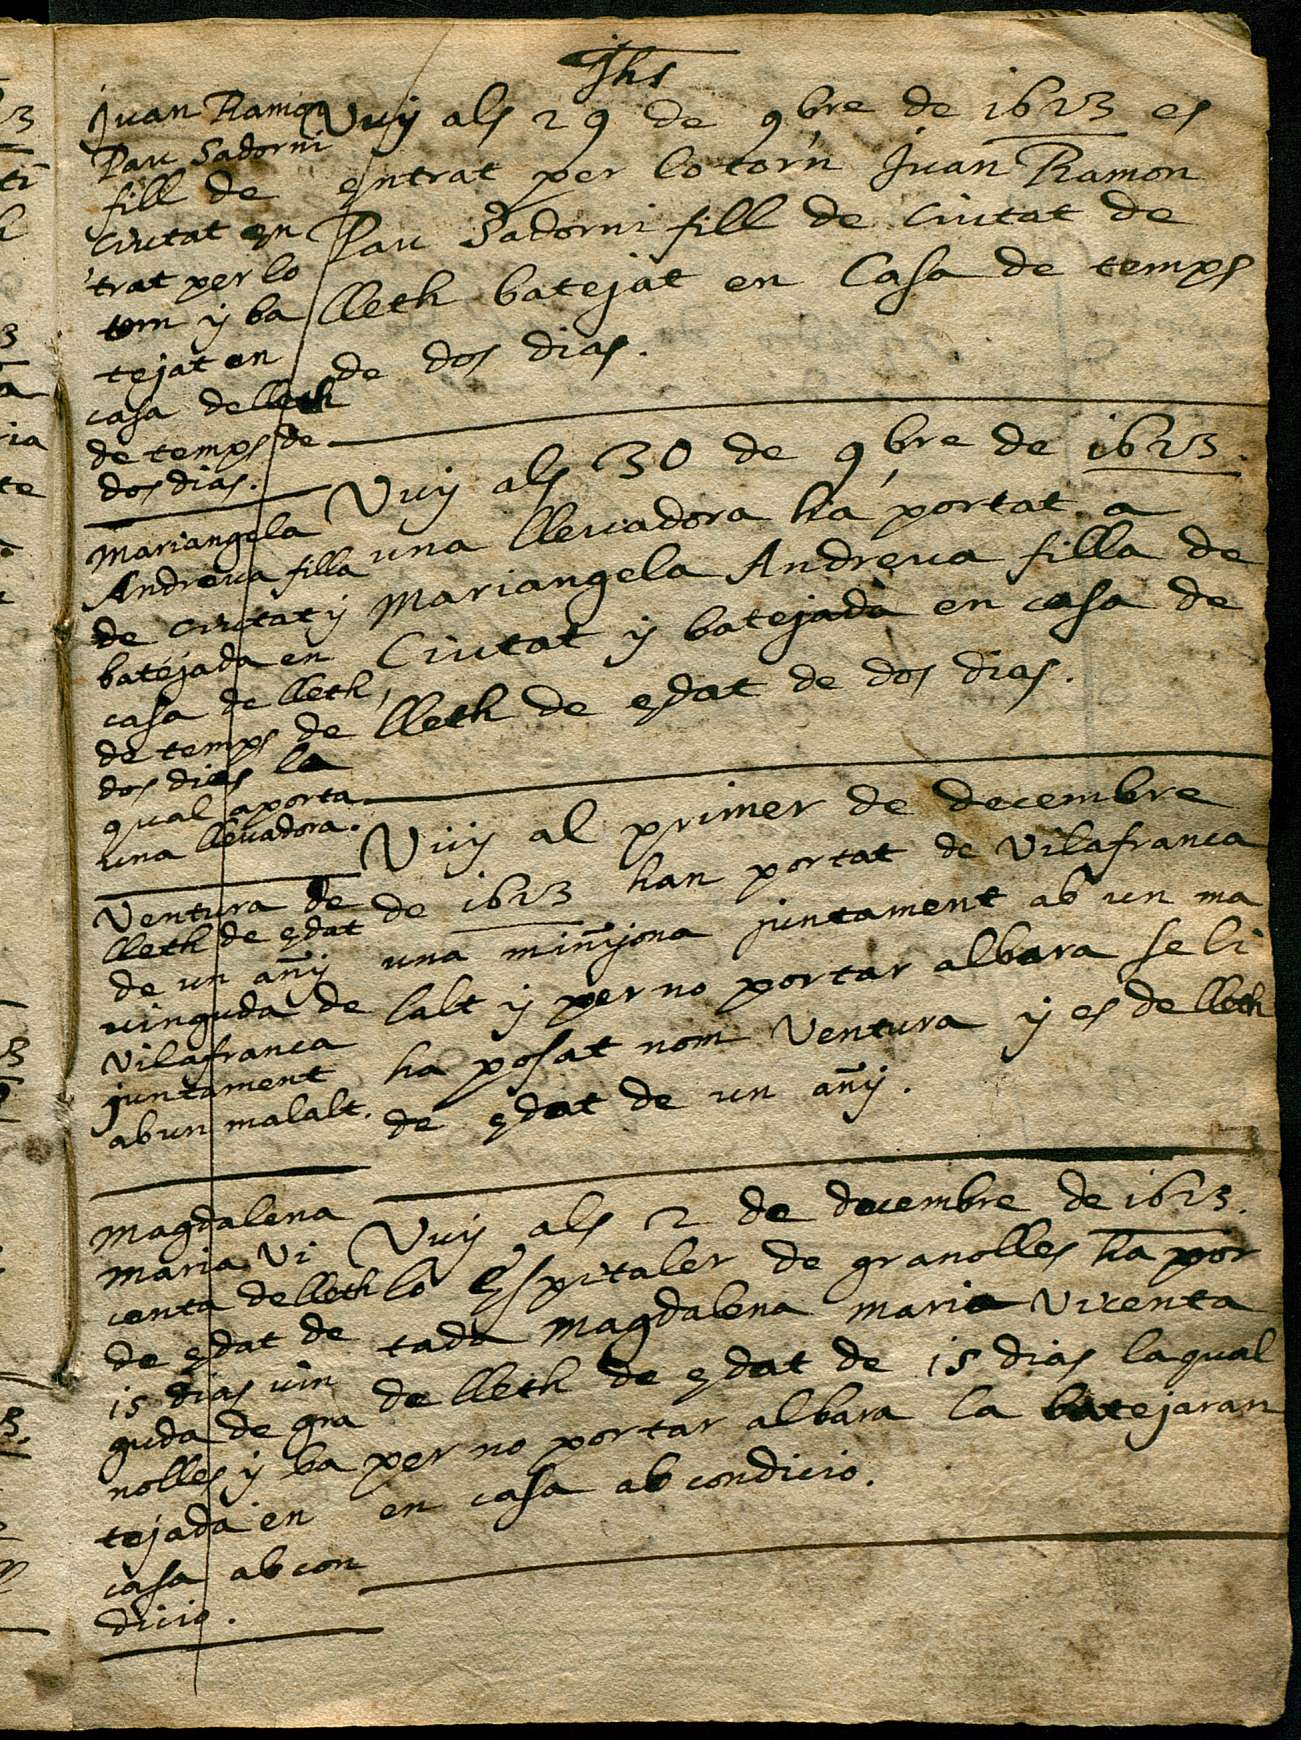 Jhs
Juan Ramon
Pau Sadorni
fill de
ciutat en
trat per lo
torn y ba
tejat en
casa de lleth
de temps de
dos dias.
Vuy als 29 de 9bre de 1623 es
entrat per lo torn Juan Ramon
Pau Sadorni fill de Ciutat de
lleth batejat en Casa de temps
de dos dias.
Mariangela
Andreua filla
de ciutat y
batejada en
casa de lleth,
de temps de
dos dias la
qual aporta
una lleuadora.
Vuy als 30 de 9bre de 1623.
una lleuadora ha portat a
Mariangela Andreua filla de
Ciutat y batejada en casa de
lleth de edat de dos dias.
Ventura de
lleth de edat
de un añy
uinguda de
Vilafranca
juntament
ab un malalt.
Vuy al primer de decembre
de 1623 han portat de Vilafranca
una miñyona juntament ab un ma
lalt y per no portar albara se li
ha posat nom Ventura y es de lleth
de edat de un añy.
Magdalena
Maria Vi
centa de lleth
de edat de
15 dias uin
guda de gra
nolles y ba
tejada en
casa ab con
dicio.
Vuy als 2 de decembre de 1623.
lo Espitaler de granolles ha por
tada Magdalena maria Vicenta
de lleth de edat de 15 dias la qual
per no portar albara la batejaran
en casa ab condicio.